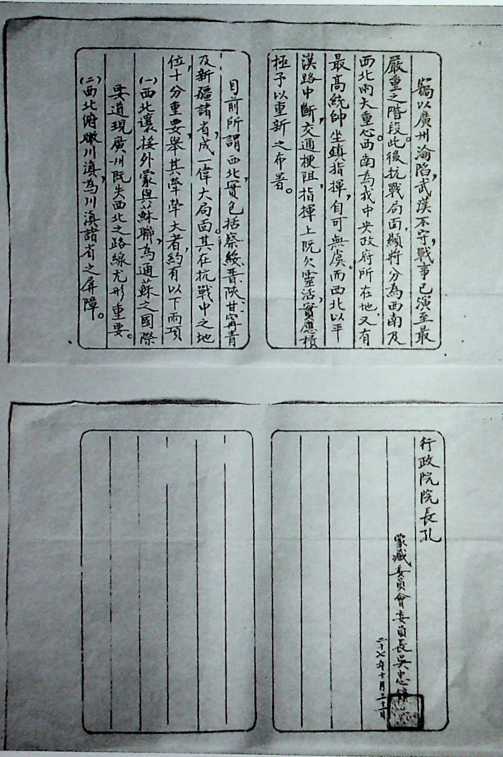 竊以廣州淪陷，武漢不守，戰事已演至最
嚴重之階段。此後抗戰局面，顯將分為西南及
西北兩大重心。西南為我中央政府所在地，又有
最高統帥坐鎮指揮，自可無虞，而西北以平
漢路中斷，交通梗阻，指揮上既欠靈活，實應積
極予以重新之布署。
目前所謂西北，實包括察綏晉陝甘寧青
及新疆諸省，成一偉大局面，其在抗戰中之地
位十分重要，舉其犖犖大者，約有以下兩項
(一)西北壤接外蒙與蘇聯，為通蘇之國際
要道，現廣州既失，西北之路線尤形重要。
(二)西北俯瞰川滇，為川滇諸省之屏障。
行政院院長孔
蒙藏委員會委員長吳忠信
二十七年十月三十一日